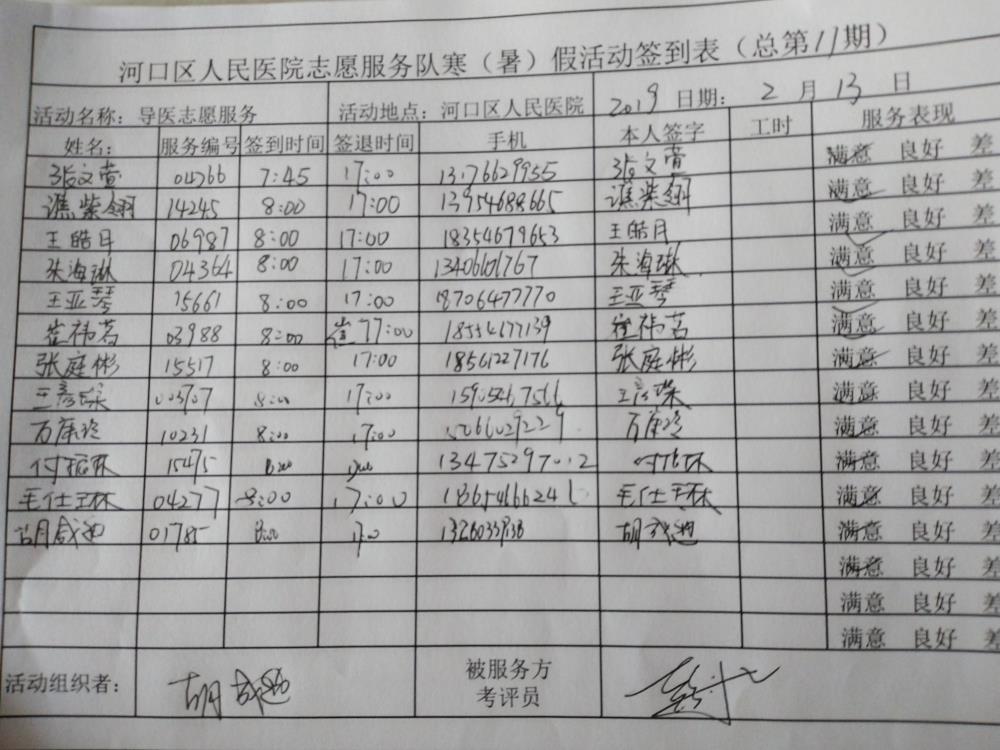 河口区人民医院志愿服务队寒（暑）假活动签到表（总第11期）
活动名称：导医志愿服务 活动地点：河口区人民医院 2019 日期： 2 月 13 日
姓名： 服务编号 签到时间 签退时间 手机 本人签字 工时 服务表现
张文萱 04266 7:45 17:00 13176629955 张文萱 满意 良好 差
谯紫翎 14245 8:00 17:00 13954688665 谯紫翎 满意 良好 差
王皓月 06987 8:00 17:00 18354679653 王皓月 满意 良好 差
朱海琳 04364 8:00 17:00 13406101767 朱海琳 满意 良好 差
王亚琴 15661 8:00 17:00 18706477770 王亚琴 满意 良好 差
崔祎茗 03988 8:00 17:00 18554677139 崔祎茗 满意 良好 差
张庭彬 15517 8:00 17:00 18561227176 张庭彬 满意 良好 差
8:00 17:00 满意 良好 差
万康玲 10231 8:00 17:00 万康玲 满意 良好 差
15475 13475297012 满意 良好 差
毛仕琳 04277 8:00 17:00 毛仕琳 满意 良好 差
01785 8:00 满意 良好 差
满意 良好 差
满意 良好 差
满意 良好 差
活动组织者： 被服务方
考评员